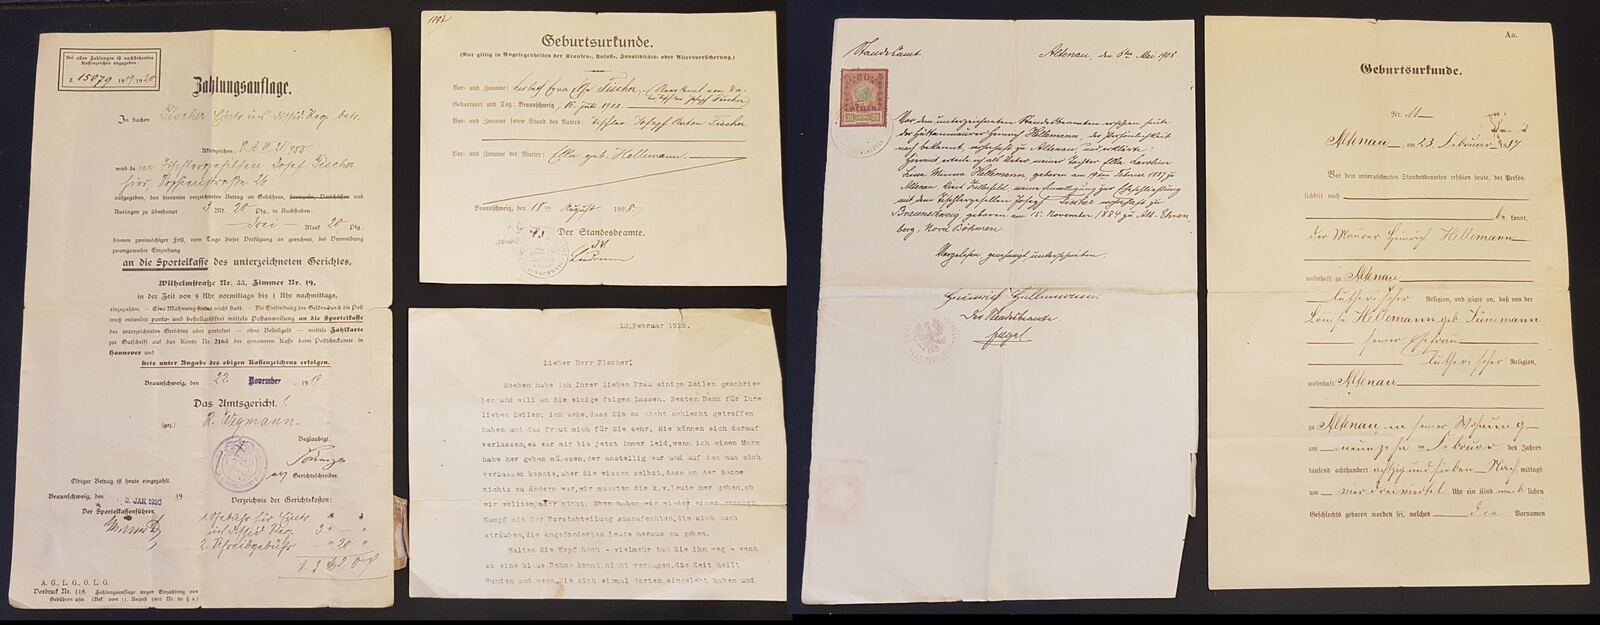 Bei allen Zahlungen ist nachstehendes
Kassenzeichen anzugeben:
Z 15079 1919/1920
Zahlungsauflage.
In Sachen Fischer
Aktenzeichen:
wird dem Tischlergesellen Josef Fischer
hier,
aufgegeben, den hierunter verzeichneten Betrag an Gebühren, Stempeln, Portokosten und
Auslagen zu überhaupt 3 Mk. 20 Pfg., in Buchstaben:
Drei Mark 20 Pfg.
binnen zweiwöchiger Frist, vom Tage dieser Verfügung an gerechnet, bei Vermeidung
zwangsweiser Einziehung
an die Sportelkasse des unterzeichneten Gerichtes,
Wilhelmstraße Nr. 53, Zimmer Nr. 19,
in der Zeit von 9 Uhr vormittags bis 1 Uhr nachmittags,
einzuzahlen. — Eine Mahnung findet nicht statt. — Die Einsendung des Geldes durch die Post
muß entweder porto- und bestellgeldfrei mittels Postanweisung an die Sportelkasse
des unterzeichneten Gerichtes oder portofrei — ohne Bestellgeld — mittels Zahlkarte
zur Gutschrift auf das Konto Nr. 2165 der genannten Kasse beim Postscheckamte in
Hannover und
stets unter Angabe des obigen Kassenzeichens erfolgen.
Braunschweig, den 22. November 1919.
Das Amtsgericht.
(gez.) R. Wegmann.
Beglaubigt:
Gerichtsschreiber.
Obiger Betrag ist heute eingezahlt.
Braunschweig, den 3. JAN 1920 19
Der Sportelkassenführer.
Verzeichnis der Gerichtskosten:
1. Gebühr für
3 "
2. Schreibgebühr — " 20 "
A. G., L. G., O. L. G.
Vordruck Nr. 118. Zahlungsauflage wegen Einzahlung von
Gebühren usw. (Bek. vom 11. August 1903 Nr. 50 § 4.)
Geburtsurkunde.
(Nur gültig in Angelegenheiten der Kranken-, Unfall-, Invaliditäts- oder Altersversicherung.)
Vor- und Zuname: Fischer
Geburtsort und Tag: Braunschweig, 16. Juli 1908.
Vor- und Zuname sowie Stand des Vaters: Tischler Joseph Anton Fischer
Vor- und Zuname der Mutter: Elka geb. Hellemann.
Braunschweig, den 18ten August 1908.
Der Standesbeamte.
12.Februar 1928.
Lieber Herr Fischer!
Soeben habe ich Ihrer lieben Frau einige Zeilen geschrie-
ben und will an Sie einige folgen lassen. Besten Dank für Ihre
lieben Zeilen; ich sehe,dass Sie es nicht schlecht getroffen
haben und das freut mich für Sie sehr. Sie können sich darauf
verlassen,es war mir bis jetzt immer leid,wenn ich einen Mann
habe her geben müssen,der anstellig war und auf den man sich
verlassen konnte,aber Sie wissen selbst,dass an der Sache
nichts zu ändern war,wir mussten die k.v.leute her geben,ob
wir wollten oder nicht. Eben haben wir wieder einen grossen
Kampf mit der Forstabteilung auszufechten,die sich auch
sträuben,die angeforderten Leute heraus zu geben.
Halten Sie Kopf hoch - vielmehr tun Sie ihn weg - wenn
so eine blaue Bohne kommt,nicht verzagen,die Zeit heilt
Wunden und wenn Sie sich einmal dorten eingelebt haben und
Standesamt. Altenau, den 6ten Mai 1908.
Vor dem unterzeichneten Standesbeamten erschien heute
der Hüttenmaurer Heinrich Hellemann, der Persönlichkeit
nach bekannt, wohnhaft zu Altenau und erklärte:
Hiermit erteile ich als Vater meiner Tochter Elka Karoline
Luise Minna Hellemann, geboren am 19ten Februar 1887 zu
Altenau, Kreis Zellerfeld, meine Einwilligung zur Eheschließung
mit dem Tischlergesellen Joseph Fischer wohnhaft zu
Braunschweig, geboren am 15. November 1884 zu Alt-Ehren
berg, Nord Böhmen.
Vorgelesen, genehmigt, unterschrieben.
Heinrich Hellemann.
Der Standesbeamte.
Aa.
Geburtsurkunde.
Nr. 11
Altenau am 23 Februar 1887
Vor dem unterzeichneten Standesbeamten erschien heute, der Persön-
lichkeit nach
be kannt,
der Maurer Heinrich Hellemann
wohnhaft zu Altenau
lutherischer Religion, und zeigte an, daß von der
Louise Hellemann geb. Tünemann
seiner Ehefrau
lutherischer Religion,
wohnhaft Altenau
zu Altenau in seiner Wohnung
am neunzehn Februar des Jahres
tausend achthundert achtzig und sieben Nach mittags
um vier dreiviertel Uhr ein Kind weib lichen
Geschlechts geboren worden sei, welches die Vornamen